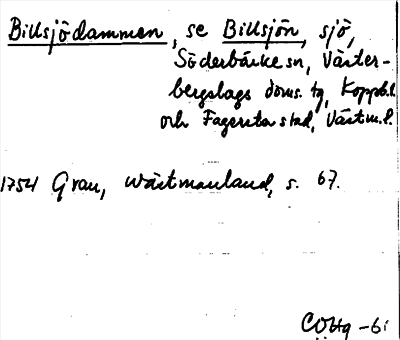 Billsjödammen, se Billsjön, sjö,
Söderbärke sn, Väster-
bergslags doms. tg, Koppb.l.
och Fagersta stad, Västm.l.
1754 Grau, Wästmanland, s. 67.